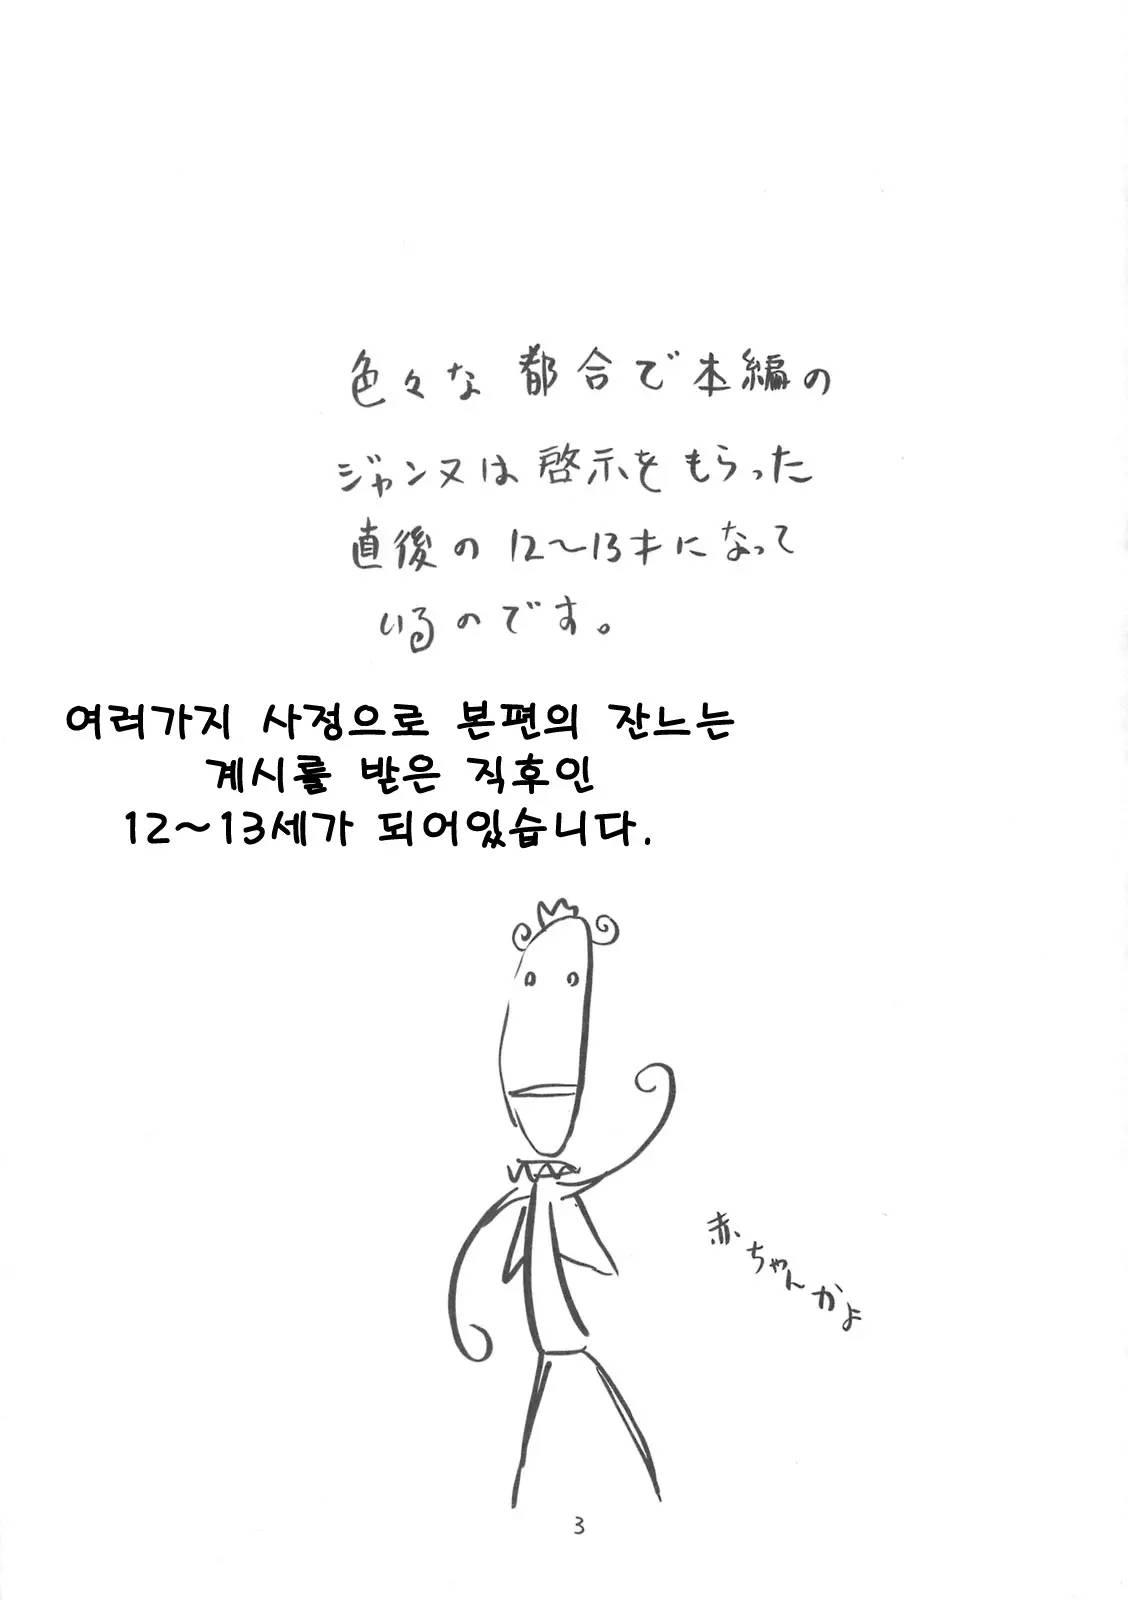 色々な都合で本編の
ジャンヌは啓示をもらった
直後の12～13才になって
いるのです。
여러가지 사정으로 본편의 잔느는
계시를 받은 직후인
12～13세가 되어있습니다.
赤ちゃんかよ
3